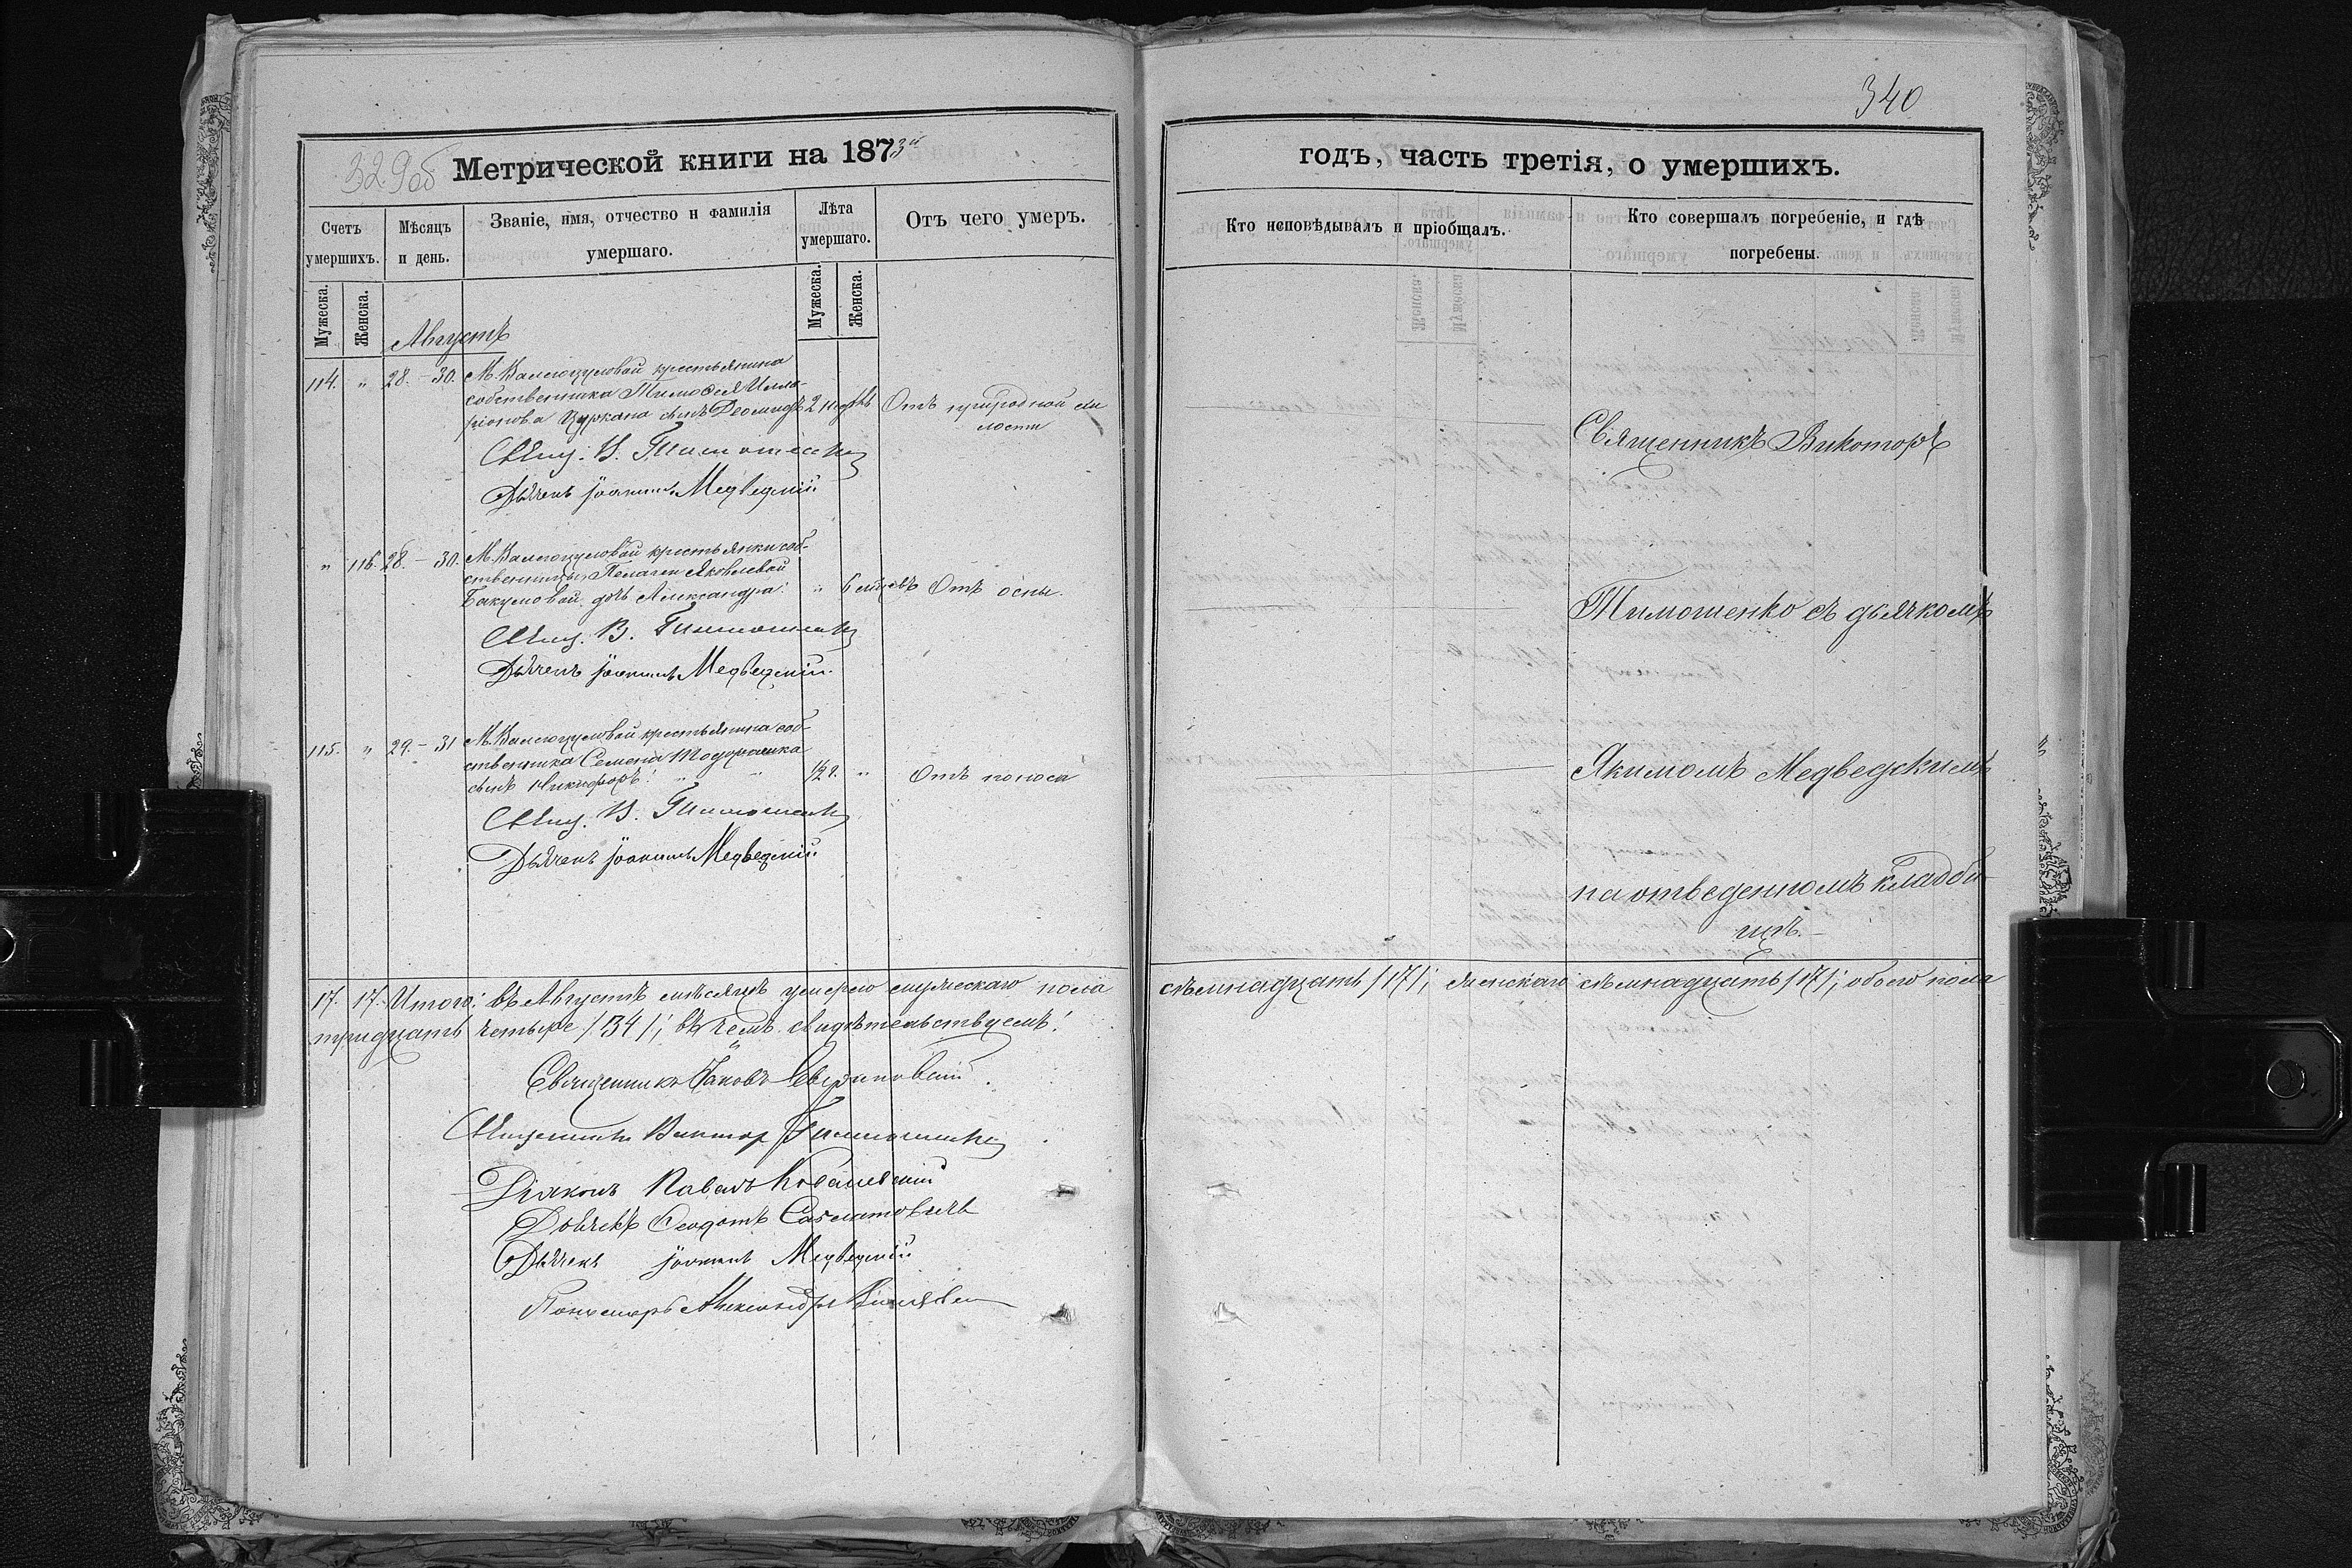 340
329об Метрической книги на 1873й
годъ, часть третія, о умершихъ.
Счетъ умершихъ.
Мѣсяцъ и день.
Званіе, имя, отчество и фамилія умершаго.
Лѣта умершаго.
Отъ чего умеръ.
Кто исповѣдывалъ и пріобщалъ.
Кто совершалъ погребеніе, и гдѣ погребены.
Мужеска. Женска. Мужеска. Женска.
Августъ
114. " 28.-30. М. Валегоцуловой крестьянина
собственника Тимофея Илла-
ріонова Цуркана сынъ Деомидъ 2 Отъ природной сла
бости
Свящ. В. Тимошенко
Дьячекъ Іоакимъ Медведскій
" 116. 28.-30. М. Валегоцуловой крестьянки соб-
ственницы Пелагеи Яковлевой
Бакумовой дочь Александра. " 6 мѣсяцовъ Отъ оспы.
Свящ. В. Тимошенко
Дьячекъ Іоакимъ Медведскій
115. " 29.-31 М. Валегоцуловой крестьянина соб-
ственника Семена
сынъ Никифоръ. 1/2 г. " Отъ поноса
Свящ. В. Тимошенко
Дьячекъ Іоакимъ Медведскій
Священникъ Викторъ
Тимошенко съ дьячкомъ
Якимомъ Медведскимъ
на отведенномъ кладби-
щѣ.-
17. 17. Итого: въ Августѣ мѣсяцѣ умерло мужескаго пола семнадцать /17/; женскаго семнадцать /17/; обоего пола
тридцать четыре /34/; въ чемъ свидѣтельствуемъ:
Священникъ Іаковъ
Священникъ Викторъ Тимошенко
Діяконъ Павелъ Ковалевскій
Дьячекъ Феодотъ
Дьячекъ Іоакимъ Медведскій
Пономарь Александръ